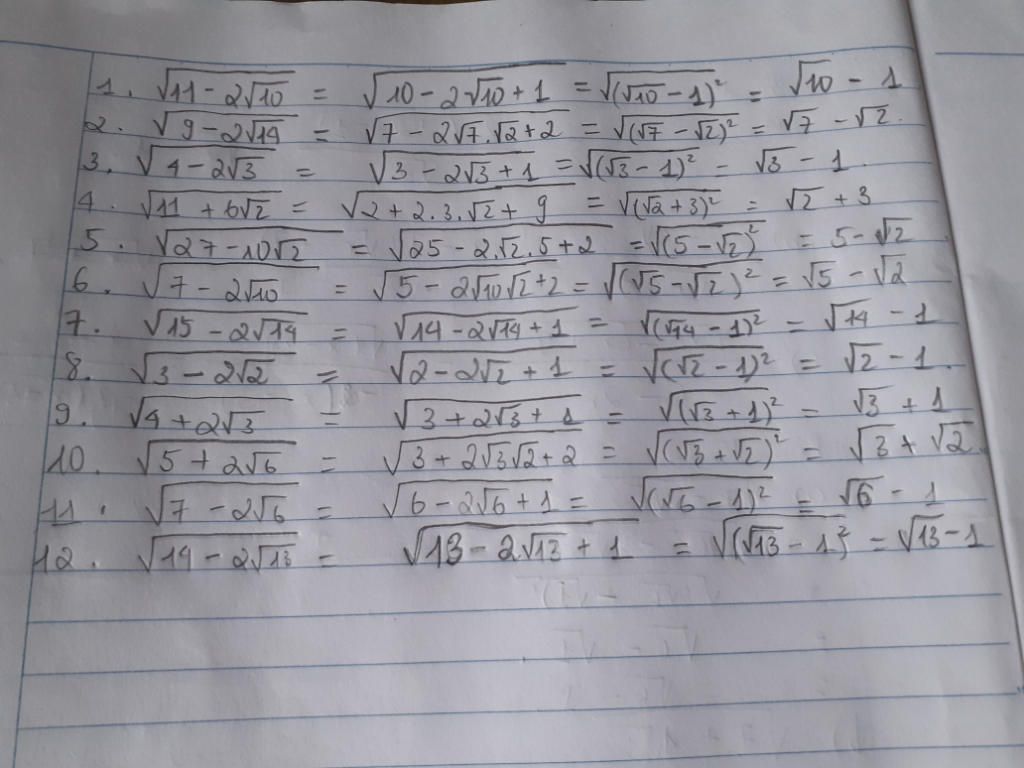 1. √(11 - 2√10) = √(10 - 2√10 + 1) = √((√10 - 1)²) = √10 - 1
2. √(9 - 2√14) = √(7 - 2√7.√2 + 2) = √((√7 - √2)²) = √7 - √2.
3. √(4 - 2√3) = √(3 - 2√3 + 1) = √((√3 - 1)²) = √3 - 1.
4. √(11 + 6√2) = √(2 + 2.3.√2 + 9) = √((√2 + 3)²) = √2 + 3
5. √(27 - 10√2) = √(25 - 2.√2.5 + 2) = √((5 - √2)²) = 5 - √2
6. √(7 - 2√10) = √(5 - 2√10√2 + 2) = √((√5 - √2)²) = √5 - √2
7. √(15 - 2√14) = √(14 - 2√14 + 1) = √((√14 - 1)²) = √14 - 1
8. √(3 - 2√2) = √(2 - 2√2 + 1) = √((√2 - 1)²) = √2 - 1.
9. √(4 + 2√3) = √(3 + 2√3 + 1) = √((√3 + 1)²) = √3 + 1
10. √(5 + 2√6) = √(3 + 2√3√2 + 2) = √((√3 + √2)²) = √3 + √2.
11. √(7 - 2√6) = √(6 - 2√6 + 1) = √((√6 - 1)²) = √6 - 1
12. √(14 - 2√13) = √(13 - 2.√13 + 1) = √((√13 - 1)²) = √13 - 1